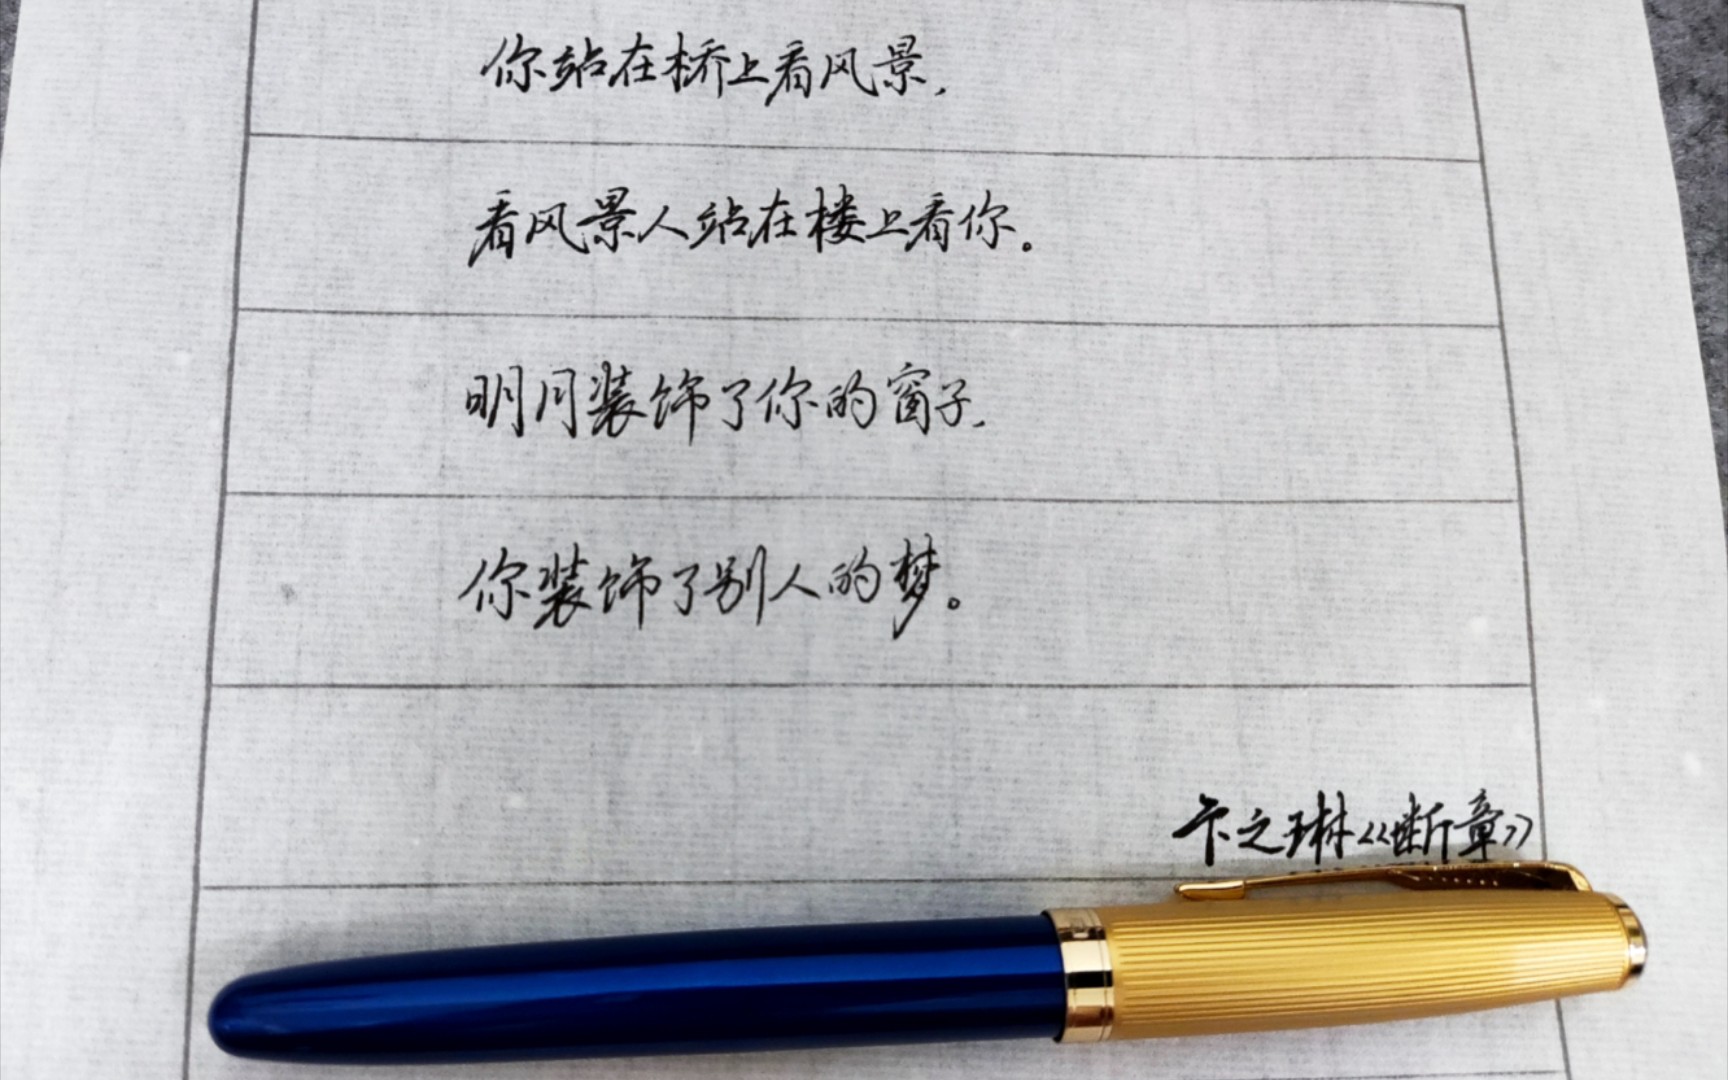 你站在桥上看风景,
看风景人站在楼上看你。
明月装饰了你的窗子,
你装饰了别人的梦。
卞之琳《断章》